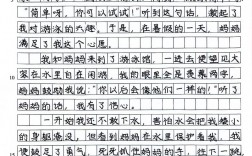 “简单呀，你可以试试！”听到这句话，
我对游泳的兴趣。于是，在暑假的一天，妈妈
满足了我这个心愿。
我和妈妈来到了游泳馆，一进去便望见大
家在水里自在闲游，我的眼里全是羡慕
妈妈鼓励我说：“你以后会像他们一样的！”听了
妈妈的话，我有了信心。
10
一开始我还不敢下水，害怕水会把我矮小
的身躯淹没，但看到妈妈在水里保护着我，我
便鼓足了勇气，死死抓住妈妈的手，往下一跳
15